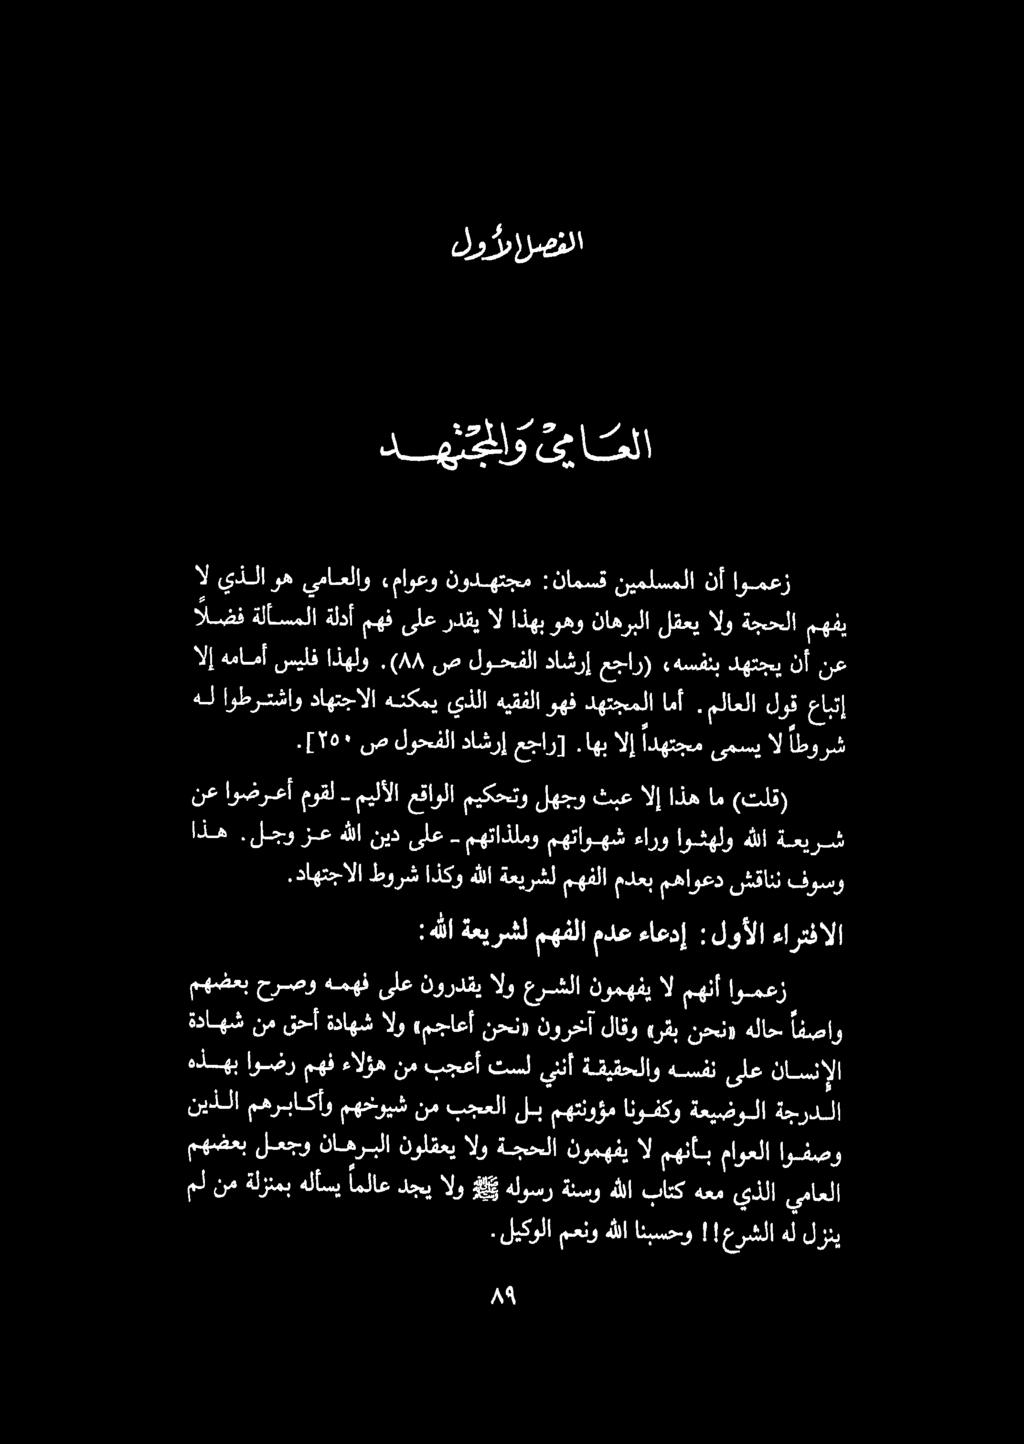 الفصل الأول
العَاميّ وَالمجْتَهد
زعموا أن المسلمين قسمان: مجتهدون وعوام، والعامي هو الذي لا
يفهم الحجة ولا يعقل البرهان وهو بهذا لا يقدر على فهم أدلة المسألة فضلاً
عن أن يجتهد بنفسه، (راجع إرشاد الفحول ص ٨٨). ولهذا فليس أمامه إلا
إتباع قول العالم. أما المجتهد فهو الفقيه الذي يمكنه الاجتهاد واشترطوا له
شروطاً لا يسمى مجتهداً إلا بها. [راجع إرشاد الفحول ص ٢٥٠].
(قلت) ما هذا إلا عبث وجهل وتحكيم الواقع الأليم - لقوم أعرضوا عن
شريعة الله ولهثوا وراء شهواتهم وملذاتهم - على دين الله عز وجل. هذا
وسوف نناقش دعواهم بعدم الفهم لشريعة الله وكذا شروط الاجتهاد.
الافتراء الأول: إدعاء عدم الفهم لشريعة الله:
زعموا أنهم لا يفهمون الشرع ولا يقدرون على فهمه وصرح بعضهم
واصفاً حاله «نحن بقر» وقال آخرون «نحن أعاجم» ولا شهادة أحق من شهادة
الإنسان على نفسه والحقيقة أنني لست أعجب من هؤلاء فهم رضوا بهذه
الدرجة الوضيعة وكفونا مؤونتهم بل العجب من شيوخهم وأكابرهم الذين
وصفوا العوام بأنهم لا يفهمون الحجة ولا يعقلون البرهان وجعل بعضهم
العامي الذي معه كتاب الله وسنة رسوله ﷺ ولا يجد عالماً يسأله بمنزلة من لم
ينزل له الشرع!! وحسبنا الله ونعم الوكيل.
٨٩